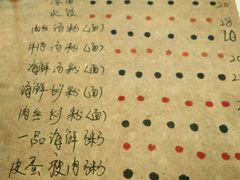 水饺 20
肉丝汤粉(面) 18
牛腩汤粉(面) 20
海鲜汤粉(面)
海鲜炒粉(面)
肉丝炒粉(面)
一品海鲜粥
皮蛋瘦肉粥